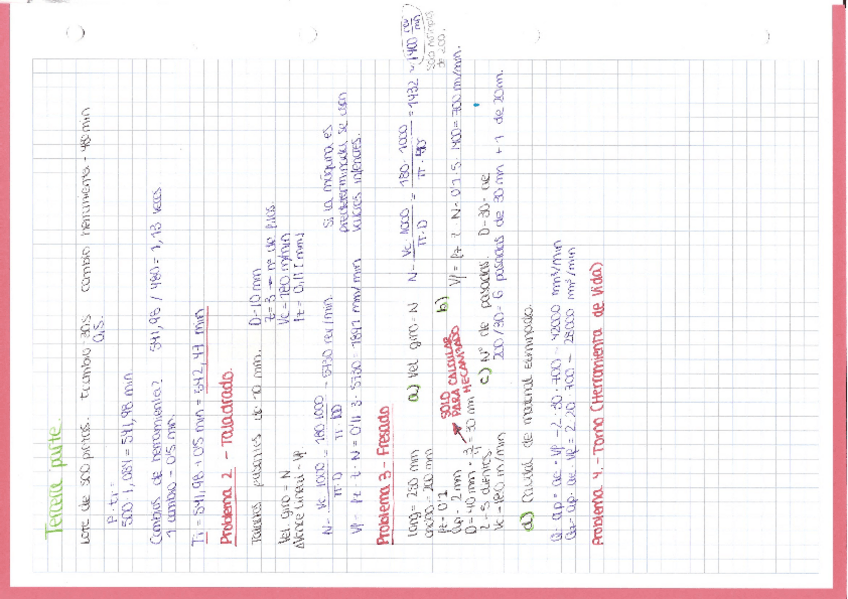 Tercera parte.
Lote de 500 piezas. t cambio = 30s cambio herramienta - 480 min
0,5.
P. tr =
500 · 1,084 = 541,98 min
Cambios de herramienta? 541,98 / 480 = 1,13 veces
1 cambio - 0'5 min.
Ti = 541,98 + 0'5 min = 542,47 min
Problema 2 - Taladrado.
Taladros pasantes de 10 mm. D=10 mm
z=3 → nº de filos
Vel. giro = N Vc = 180 m/min
Avance lineal = Vf. fz = 0,11 [mm]
N = Vc · 1000 / π·D = 180·1000 / π·10 = 5730 rev/min. Si la máquina es
predeterminada, se cogen
valores inferiores.
Vf = fz · z · N = 0'11 · 3 · 5730 = 1892 mm/min
Problema 3 - Fresado
long = 250 mm
ancho = 200 mm
fz = 0'1
ap = 2 mm
D = 40 mm · 3/4 = 30 mm
z = 5 dientes.
Vc = 180 m/min
SOLO
PARA CALCULAR
MECANIZADO
a) Vel. giro = N N = Vc · 1000 / π·D = 180 · 1000 / π · 40 = 1432 ≈ 1400 rev/min
Solo múltiplos
de 200.
b) Vf = fz · z · N = 0'1 · 5 · 1400 = 700 mm/min.
c) Nº de pasadas. D=30= ae
200/30= 6 pasadas de 30 mm + 1 de 20 mm.
d) Caudal de material eliminado.
Q = ap · ae · Vf = 2 · 30 · 700 = 42000 mm³/min
Q2 = ap · ae · Vf = 2 · 20 · 700 = 28000 mm³/min
Problema 4. - Torno (Herramienta de Vida)